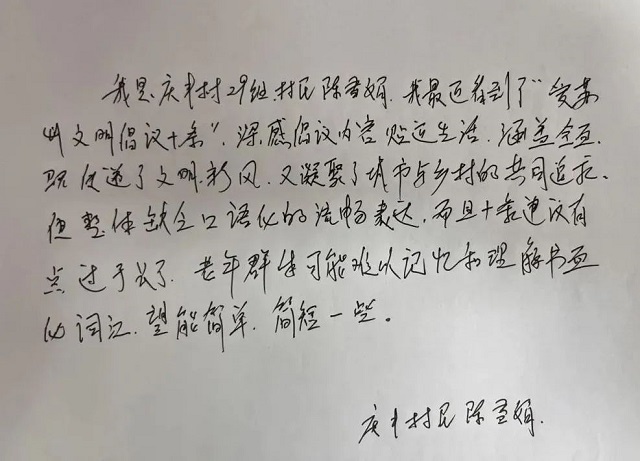 我是庆丰村29组村民陈雪娟.我最近看到了"爱苏
州文明倡议十条",深感倡议内容贴近生活.涵盖全面.
既传递了文明新风.又凝聚了城市与乡村的共同追求.
但整体缺乏口语化的流畅表达.而且十条建议有
点过于长了.老年群体可能难以记忆和理解书面
化词汇.望能简单.简短一些。
庆丰村民陈雪娟.